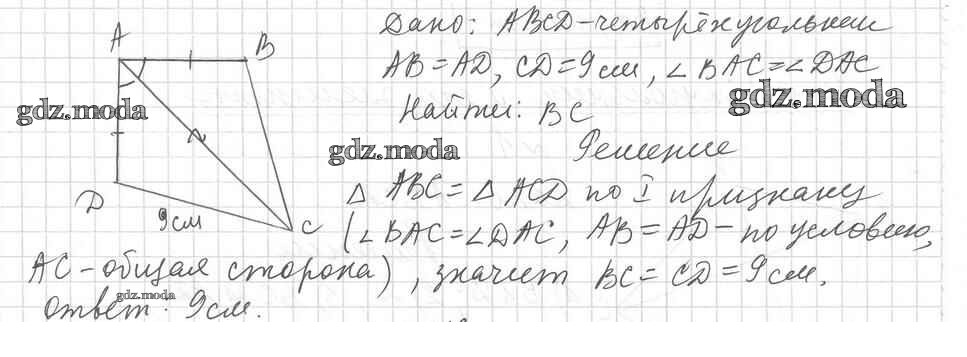 Дано: ABCD-четырёхугольник
AB=AD, CD=9см, ∠BAC=∠DAC
Найти: BC
Решение
△ ABC=△ ACD по I признаку
(∠BAC=∠DAC, AB=AD-по условию,
AC-общая сторона), значит BC=CD=9см.
Ответ: 9см.
A
B
D
C
9см
gdz.moda
gdz.moda
gdz.moda
gdz.moda